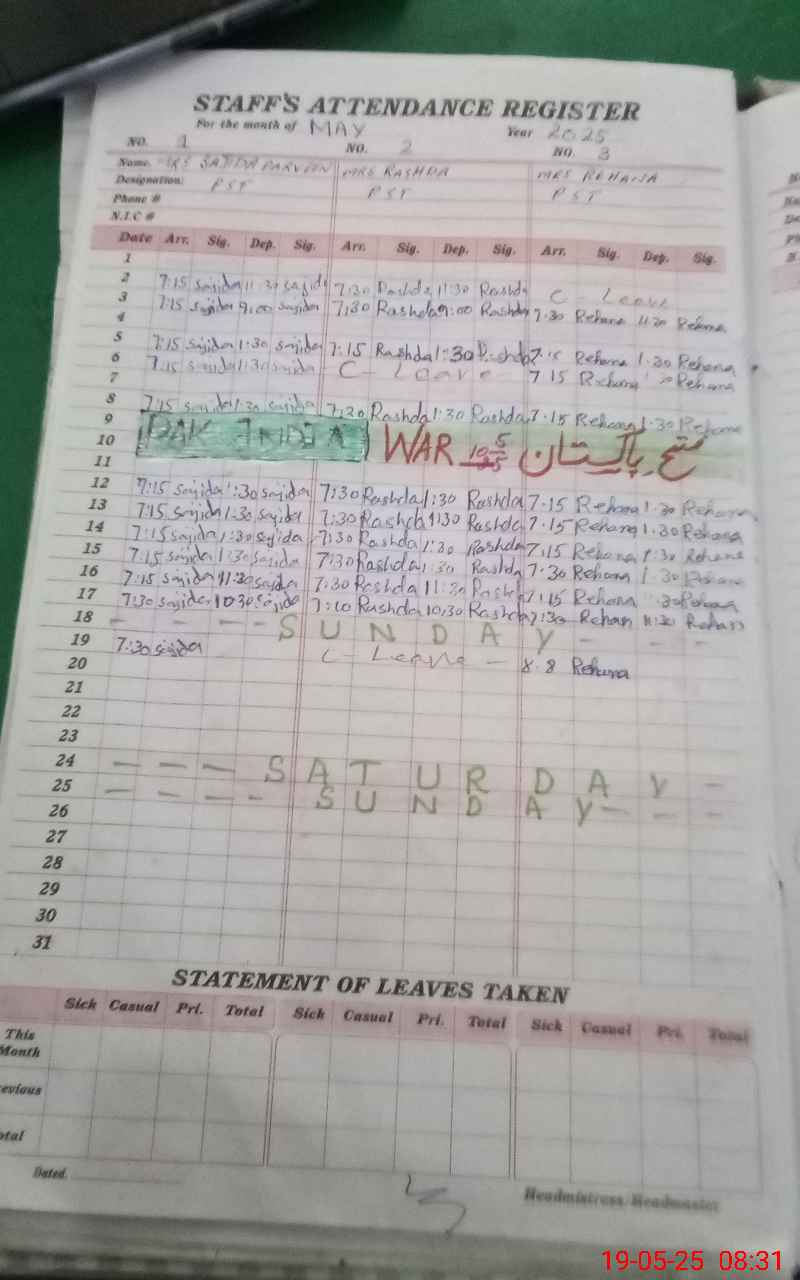 STAFF'S ATTENDANCE REGISTER
For the month of MAY Year 2025
NO. 1 NO. 2 NO. 3
Name. MRS SAJIDA PARVEEN MRS RASHDA MRS REHANA
Designation: PST PST PST
Phone #
N.I.C #
Date Arr. Sig. Dep. Sig. Arr. Sig. Dep. Sig. Arr. Sig. Dep. Sig.
1
2 7:15 Sajida 11:30 Sajida 7:30 Rashda 11:30 Rashda C - Leave
3 7:15 Sajida 9:00 Sajida 7:30 Rashda 9:00 Rashda 7:30 Rehana 11:30 Rehana
4
5 7:15 Sajida 1:30 Sajida 7:15 Rashda 1:30 Rashda 7:15 Rehana 1:30 Rehana
6 7:15 Sajida 1:30 Sajida C - Leave - 7:15 Rehana Rehana
7
8 7:15 Sajida 1:30 Sajida 7:30 Rashda 1:30 Rashda 7:15 Rehana 1:30 Rehana
9
10 PAK INDIA WAR فتح پاکستان
11
12 7:15 Sajida 1:30 Sajida 7:30 Rashda 1:30 Rashda 7:15 Rehana 1:30 Rehana
13 7:15 Sajida 1:30 Sajida 7:30 Rashda 1:30 Rashda 7:15 Rehana 1:30 Rehana
14 7:15 Sajida 1:30 Sajida 7:30 Rashda 1:30 Rashda 7:15 Rehana 1:30 Rehana
15 7:15 Sajida 1:30 Sajida 7:30 Rashda 1:30 Rashda 7:30 Rehana 1:30 Rehana
16 7:15 Sajida 11:30 Sajida 7:30 Rashda 11:30 Rashda 7:15 Rehana Rehana
17 7:30 Sajida 10:30 Sajida Rashda 10:30 Rashda 7:30 Rehana Rehana
18 - - - - SUNDAY - - -
19 7:30 Sajida C - Leave - 8 Rehana
20
21
22
23
24 - - - SATURDAY -
25 - - - - SUNDAY - - -
26
27
28
29
30
31
STATEMENT OF LEAVES TAKEN
Sick Casual Pri. Total Sick Casual Pri. Total Sick Casual Pri. Total
This
Month
evious
otal
Dated.
Headmistress/Headmaster
19-05-25 08:31